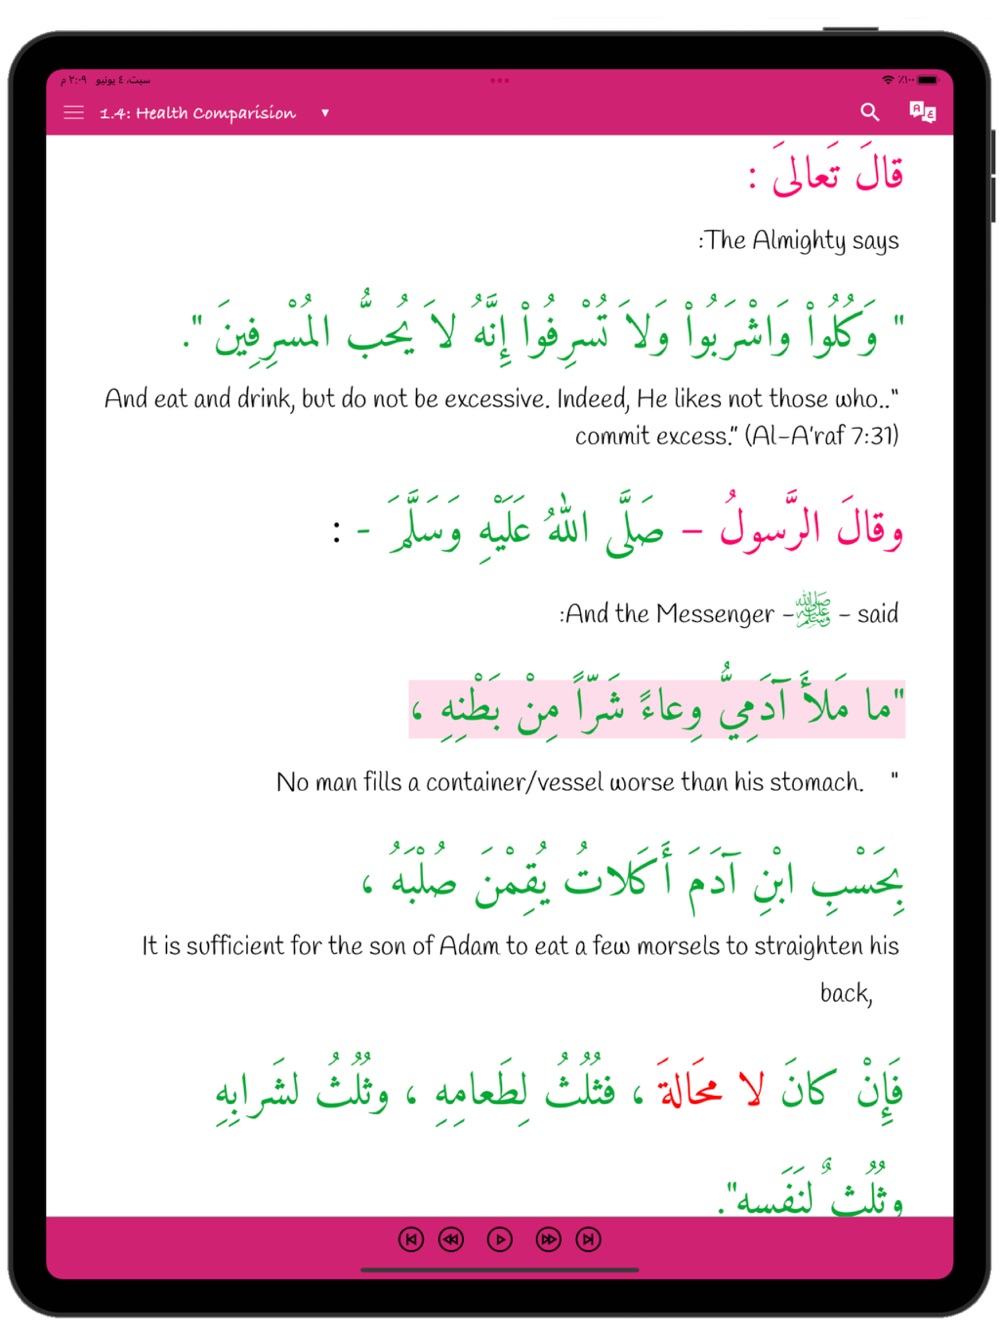 سبت، ٤ يونيو ٢:٠٩ م
٪١٠٠
1.4: Health Comparision
قالَ تَعالىَ :
:The Almighty says
" وَكُلُواْ وَاشْرَبُواْ وَلاَ تُسْرِفُواْ إِنَّهُ لاَ يُحبُّ المُسْرِفِينَ ".
And eat and drink, but do not be excessive. Indeed, He likes not those who.."
commit excess." (Al-A'raf 7:31)
وقالَ الرَّسولُ – صَلَّى اللهُ عَلَيْهِ وَسَلَّمَ - :
:And the Messenger -ﷺ - said
"ما مَلأَ آدَمِيُّ وِعاءً شَرّاً مِنْ بَطْنِهِ ،
No man fills a container/vessel worse than his stomach. "
بِحَسْبِ ابْنِ آدَمَ أَكَلاتُ يُقِمْنَ صُلْبَهُ ،
It is sufficient for the son of Adam to eat a few morsels to straighten his
back,
فَإِنْ كانَ لا محَالةَ ، فثُلُثُ لِطَعامِهِ ، وثُلُثُ لشَرابِهِ
وثُلُث ٌ لنَفَسه".